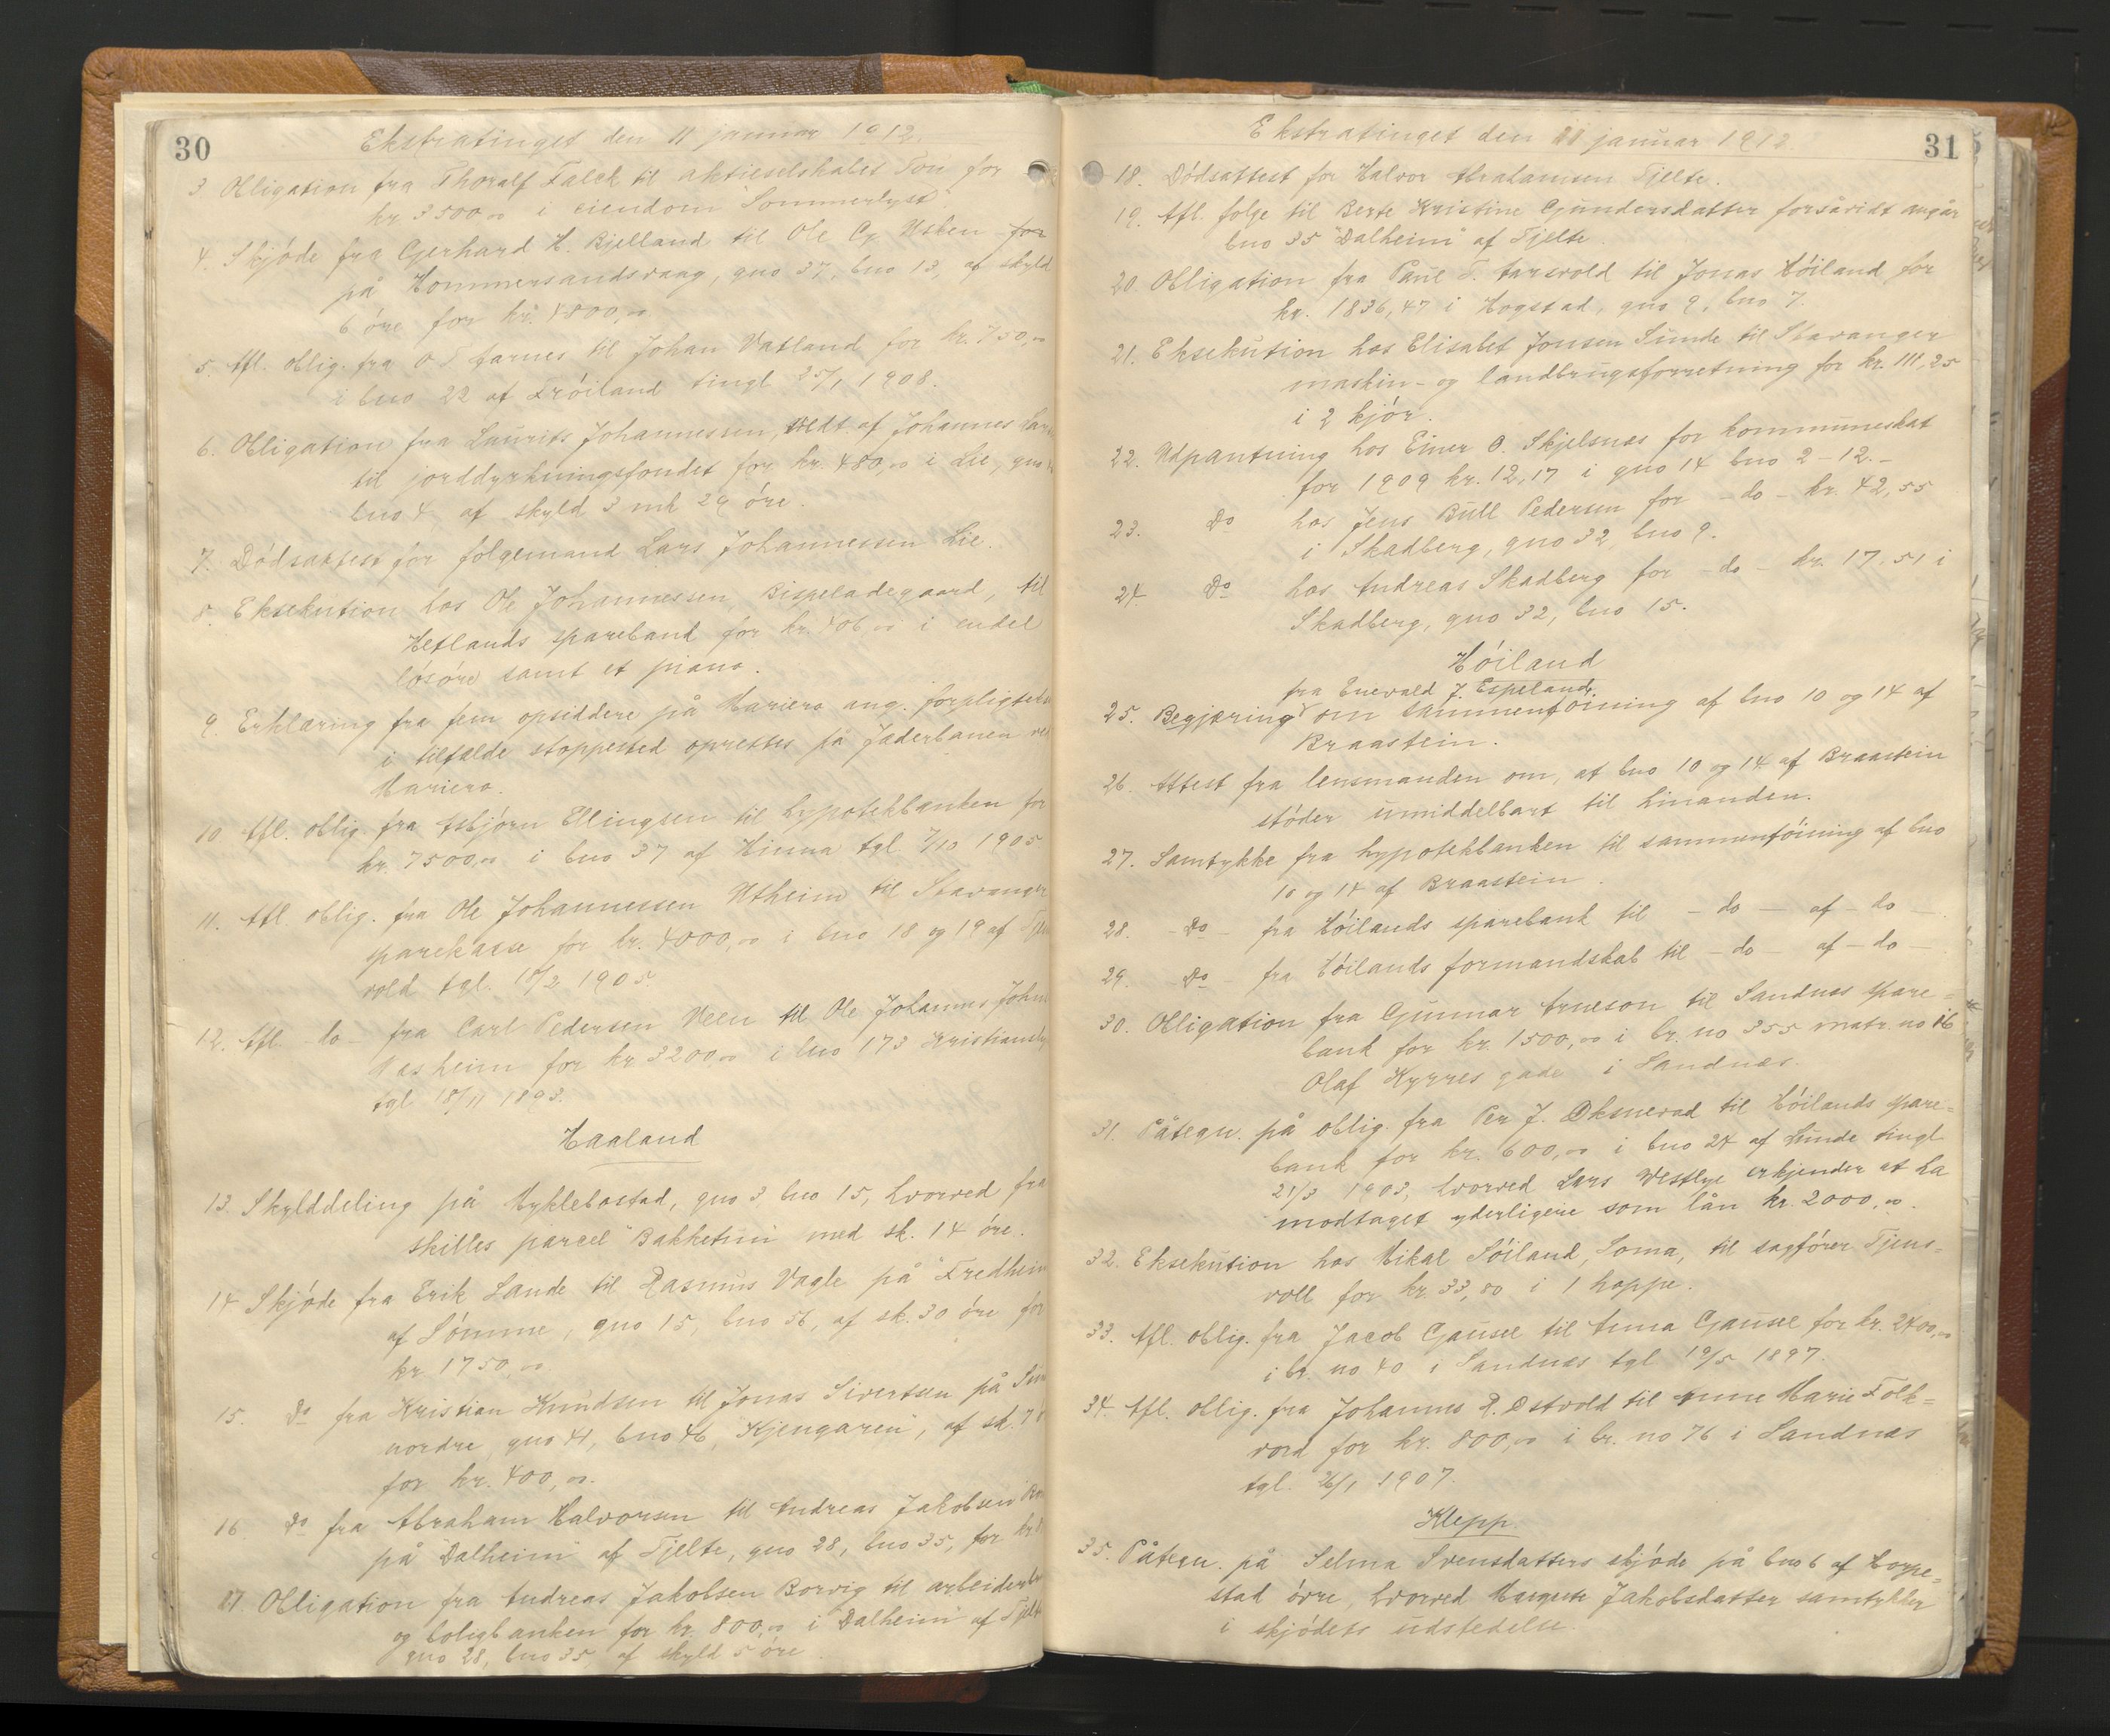 30
Ekstratinget den 11 januar 1912.
3. Obligation fra Thoralf Falck til aktieselskabet Ton for
kr 3500,00 i eiendom "Sommerlyst".
4. Skjøde fra Gerhard H. Bjelland til Ole G. Usken for
på Hommersandsvaag, gno 37, bno 13, af skyld
6 øre for kr. 4800,00.
5. Afl. oblig. fra O T Aarnes til Johan Vatland for kr. 750,00
i bno 22 af Frøiland tingl 25/1 1908.
6. Obligation fra Laurits Johannessen, vedt. af Johannes
til jorddyrkningsfondet for kr. 480,00 i Lie, gno
bno 4, af skyld 3 mk 29 øre.
7. Dødsattest for følgemand Lars Johannessen Lie.
8. Eksekution hos Ole Johannessen, Bispeladegaard, til
Hetlands sparebank for kr. 406,00 i endel
løsøre samt et piano.
9. Erklæring fra fem opsiddere på Mariero ang. forpligtelse
i tilfælde stoppested oprettes på Jæderbanen ved
Mariero.
10. Afl. oblig. fra Asbjørn Ellingsen til hypothekbanken for
kr. 7500,00 i bno 37 af Hinna tgl 7/10 1905
11. Afl. oblig. fra Ole Johannessen Utheim til Stavanger
sparekasse for kr. 4000,00 i bno 18 og 19 af
vold tgl. 18/2 1905.
12. Afl. do fra Carl Pedersen Veen til Ole Johannes
Aasheim for kr 3200,00 i bno 173 Kristiansly
tgl 18/11 1893.
Haaland
13. Skylddeling på Myklebostad, gno 3 bno 15, hvorved fra
skilles parcel "Bakketun" med sk. 14 øre.
14 Skjøde fra Erik Sande til Rasmus Vagle på "Fredheim
af Sømme, gno 15, bno 56, af sk. 30 øre for
kr 1750,00
15. Do fra Kristian Knudsen til Jonas Sivertsen på
nordre, gno 41, bno 46, "Kjengaren", af sk.
for kr. 400,00.
16 Do fra Abraham Halvorsen til Andreas Jakobsen
på "Dalheim" af Tjelte, gno 28, bno 35, for kr
17. Obligation fra Andreas Jakobsen Borvig til arbeiderbruk
og boligbanken for kr. 800,00 i "Dalheim" af Tjelte
gno 28, bno 35 af skyld 5 øre.
31
Ekstratinget den 11 januar 1912.
18. Dødsattest for Halvor Abrahamsen Tjelte.
19. Afl. følge til Berte Kristine Gundersdatter forsåvidt angår
bno 35 "Dalheim" af Tjelte.
20. Obligation fra Paul T. Aarsvold til Jonas Høiland for
kr. 1836,47 i Hogstad, gno 9, bno 7.
21. Eksekution hos Elisabet Jonsen Sunde til Stavanger
maskin- og landbrugsforretning for kr. 111,25
i 2 kjør.
22. Udpantning hos Einer O. Skjelsnæs for kommuneskat
for 1909 kr. 12,17 i gno 14 bno 2-12.-
23. Do hos Jens Bull Pedersen for - do - kr. 42,55
i Skadberg, gno 32, bno 9.
24. Do hos Andreas Skadberg for - do - kr. 17,51 i
Skadberg, gno 32, bno 15.
Høiland
fra Enevald J. Espeland
25. Begjæring om sammenføining af bno 10 og 14 af
Braastein.
26. Attest fra lensmanden om, at bno 10 og 14 af Braastein
støder umiddelbart til hinanden.
27. Samtykke fra hypothekbanken til sammenføining af bno
10 og 14 af Braastein.
28. Do fra Høilands sparebank til - do - af - do -
29. Do fra Høilands formandskab til - do - af - do -
30. Obligation fra Gunnar Arneson til Sandnæs spare=
bank for kr. 1500,00 i br. no 355 matr. no 16
Olaf Kyrres gade i Sandnæs.
31. Påtegn. på oblig. fra Per J. Oksnevad til Høilands spare=
bank for kr. 600,00 i bno 24 af Lunde tingl.
21/3 1903, hvorved Lars Vestlye erkjender at ha
modtaget yderligere som lån kr. 2000,00.
32. Eksekution hos Mikal Søiland, Soma, til sagfører Tjens=
voll for kr. 33,80 i 1 hoppe.
33. Afl. oblig. fra Jacob Gausel til Anna Gausel for kr. 2400,00
i br. no 40 i Sandnæs tgl 19/5 1897.
34. Afl. oblig. fra Johannes R. Østvold til Anne Marie Folk=
vord for kr. 800,00 i br. no 76 i Sandnæs
tgl. 26/1 1907.
Klepp.
35. Påtegn. på Selma Svensdatters skjøde på bno 6 af Horpe=
stad øvre, hvorved Margrete Jakobsdatter samtykker
i skjødets udstedelse.